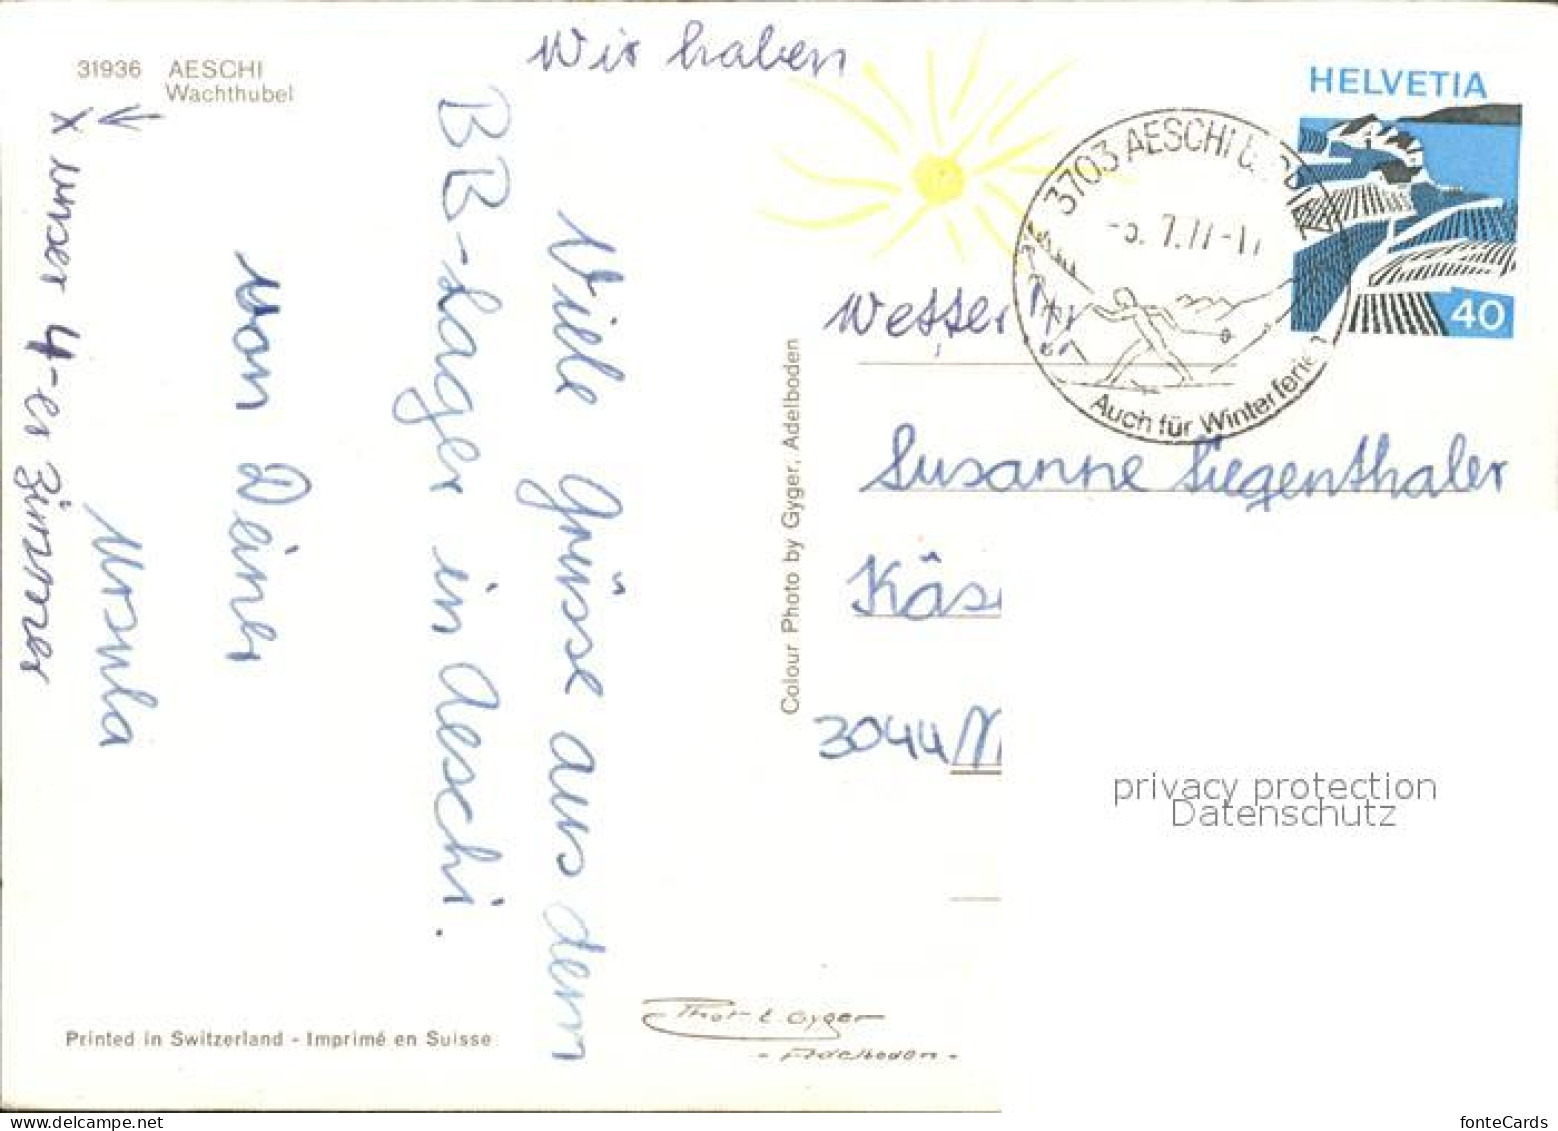 31936 AESCHI
Wachthubel
x unser 4-er Zimmer
Wir haben
Wetter!
Viele Grüsse aus dem
BB-Lager in Aeschi.
von Deiner
Ursula
HELVETIA
40
3703 AESCHI
7.77-17
Auch für Winterferien
Susanne Siegenthaler
Käs
3044 M
Colour Photo by Gyger, Adelboden
Printed in Switzerland - Imprimé en Suisse
Phot E. Gyger
- Adelboden -
privacy protection
Datenschutz
fonteCards